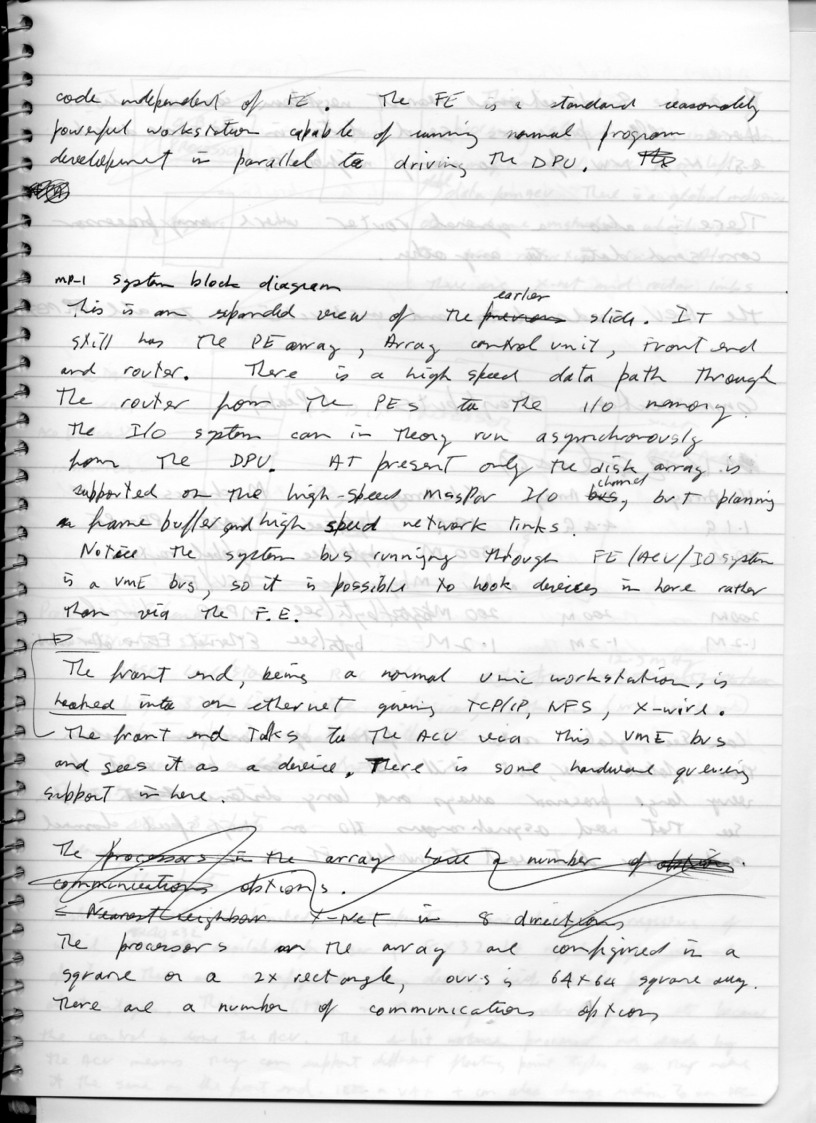 code independent of FE. The FE is a standard reasonably
powerful workstation capable of running normal program
development in parallel to driving the DPU. The
MP-1 system block diagram
This is an expanded view of the previous earlier slide. IT
still has the PE array, Array control unit, Front end
and router. There is a high speed data path through
the router from the PEs to the I/O memory.
The I/O system can in theory run asynchronously
from the DPU. AT present only the disk array is
supported on the high-speed MasPar I/O bus channel, but planning
a frame buffer and high speed network links.
Notice the system bus running through FE/ACU/IO system
is a VME bus, so it is possible to hook devices in here rather
than via the F.E.
The front end, being a normal unix workstation, is
hooked into an ethernet giving TCP/IP, NFS, X-wire.
The front end Talks to The ACU via this VME bus
and sees it as a device. There is some hardware queueing
support in here.
The processors in the array have a number of options.
communications options.
= Nearest neighbour X-Net in 8 directions
The processors in the array are configured in a
square or a 2x rectangle, ours is 64x64 square array.
There are a number of communications options